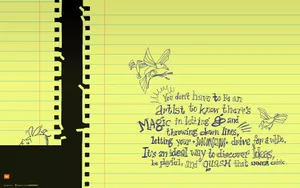 You don't have to be an
artist to know there's
Magic in letting go and
throwing down lines,
letting your drive for a while.
It's an ideal way to discover ideas,
be playful, and quash that inner critic.